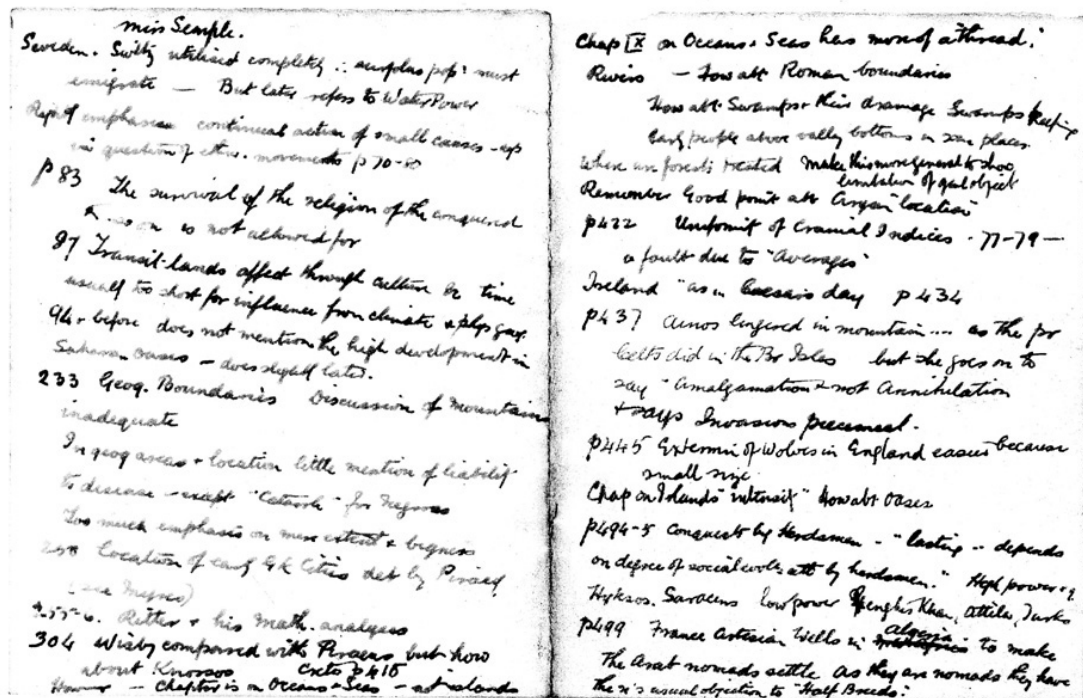 Miss Semple.
Sweden. Swiftly utilised completely ∴ surplus pop: must
emigrate — But later refers to Water Power
emphasises continual action of small causes – esp
in question of ethn. movements p 70-80
p 83 The survival of the religion of the conquered
is not allowed for
87 Transit-lands affect through culture bec time
usually too short for influence from climate & phys geog.
94 & before does not mention the high development in
Saharan oases – does slightly later.
233 Geog. Boundaries Discussion of Mountains
inadequate
In geog areas & location little mention of liability
to disease – except "Catarrh" for Negroes
Too much emphasis on mere extent & bigness
Location of early Gk Cities det by Piracy
Ritter & his math. analyses
304 Wisby compared with Piraeus but how
about Knossos Crete p 416
However — Chapter is on Oceans & Seas — not islands
Chap IX on Oceans & Seas has more of a "thread".
Rivers — How abt Roman boundaries
How abt Swamps & their drainage Swamps keeping
Early people above vally bottoms in some places.
Where are forests treated Make this more general to show
limitation of geol object
Remember Good point abt Aryan "location"
p 422 Uniformit of Cranial Indices - 77-79 —
a fault due to "Averages"
Ireland "as in Caesar's day p 434
p 437 Ainos lingered in mountain.... as the pr
Celts did in the Br Isles but she goes on to
say "Amalgamation & not Annihilation
+ says Invasion piecemeal.
p 445 Extermin of Wolves in England easier because
small size
Chap on Islands "intensity" How abt Oases
p 494-5 Conquests by Herdsmen - "lasting -- depends
on degree of social evoltn att by herdsmen." High power eg
Hyksos. Saracens low power Jenghis Khan, Attila, Turks
p 499 France Artesian Wells in Algeria to make
The Arab nomads settle As they are nomads they have
usual objection to "Half Breeds."